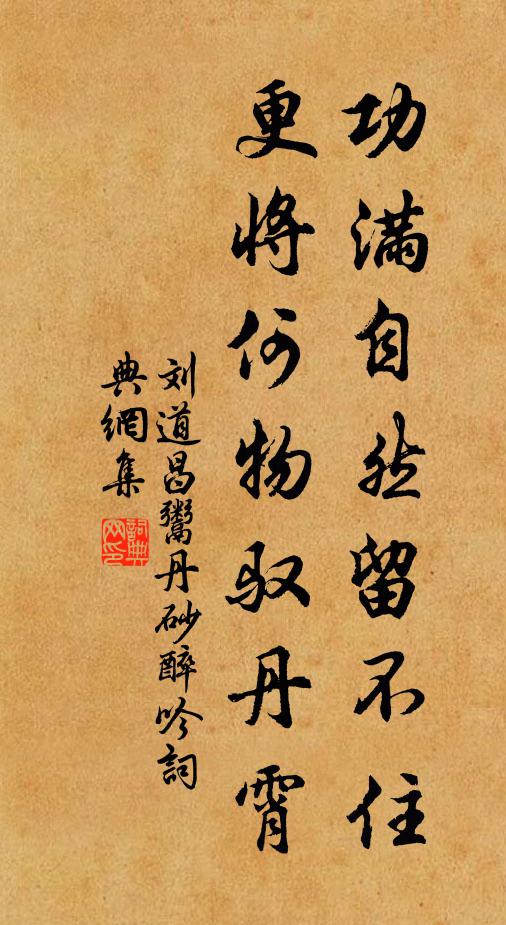 功满自然留不住
更将何物驭丹霄
刘道昌鬻丹砂醉吟詞
典網集
詞典网印